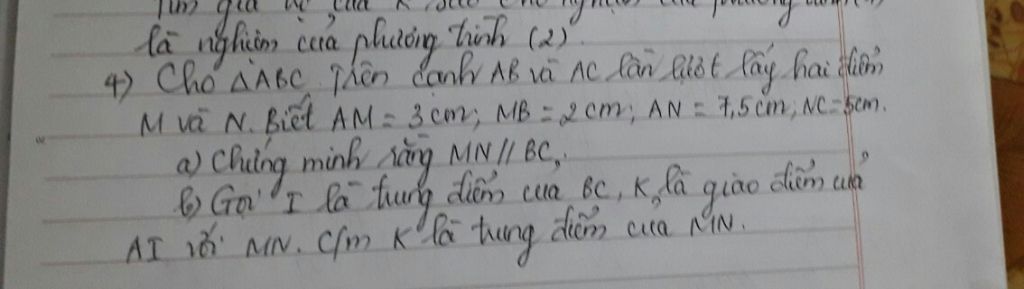 Tìm giá trị của K sao cho nghiệm của phương trình (1)
là nghiệm của phương trình (2).
4) Cho ΔABC. Trên cạnh AB và AC lần lượt lấy hai điểm
M và N. Biết AM = 3cm; MB = 2cm; AN = 7,5cm; NC = 5cm.
a) Chứng minh rằng MN // BC.
b) Gọi I là trung điểm của BC, K là giao điểm của
AI với MN. C/m K là trung điểm của MN.